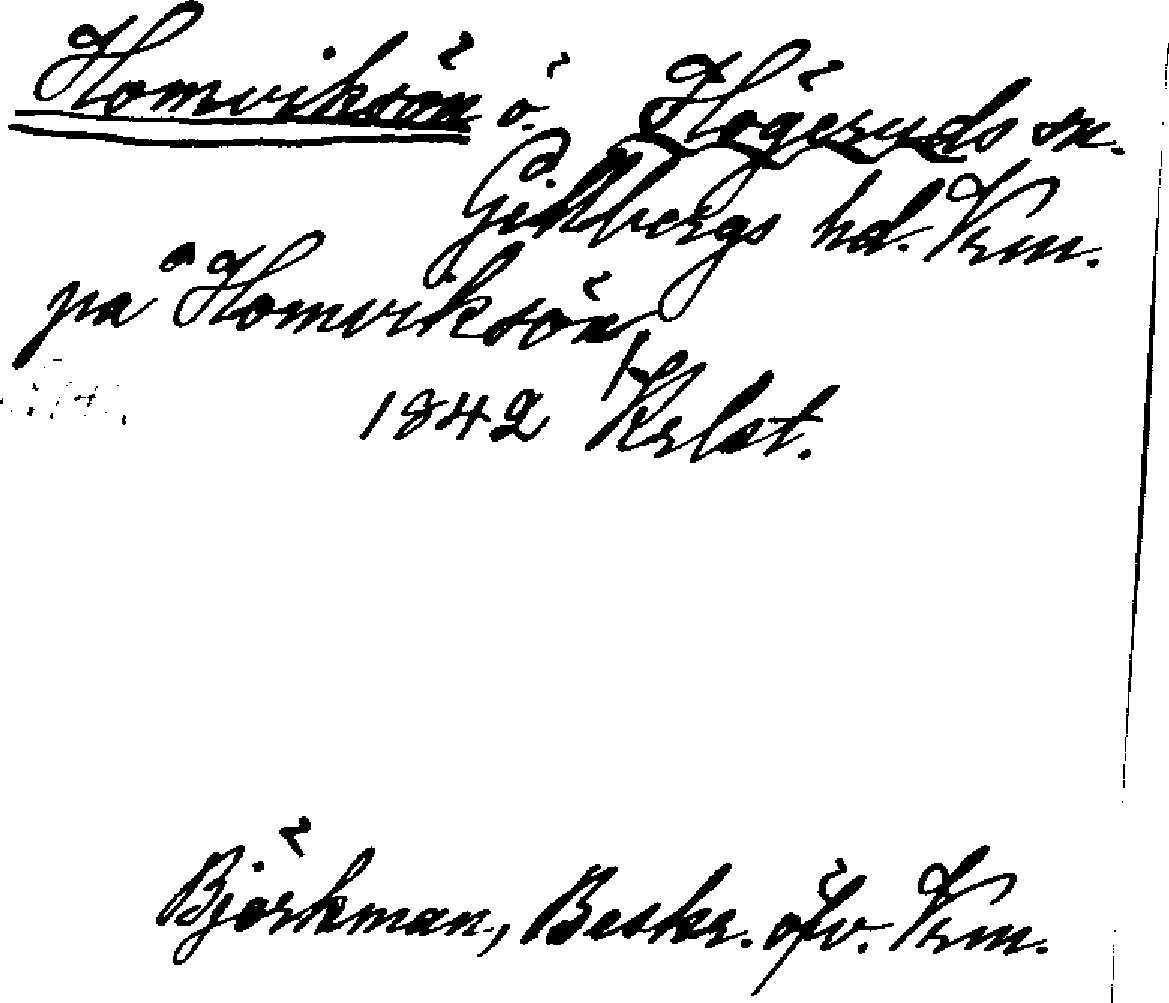 Homviksön ö. Högeruds sn.
Gillbergs hd. Vrm.
på Homviksön
1842 Krlst.
Björkman, Beskr. öfv. Vrm.